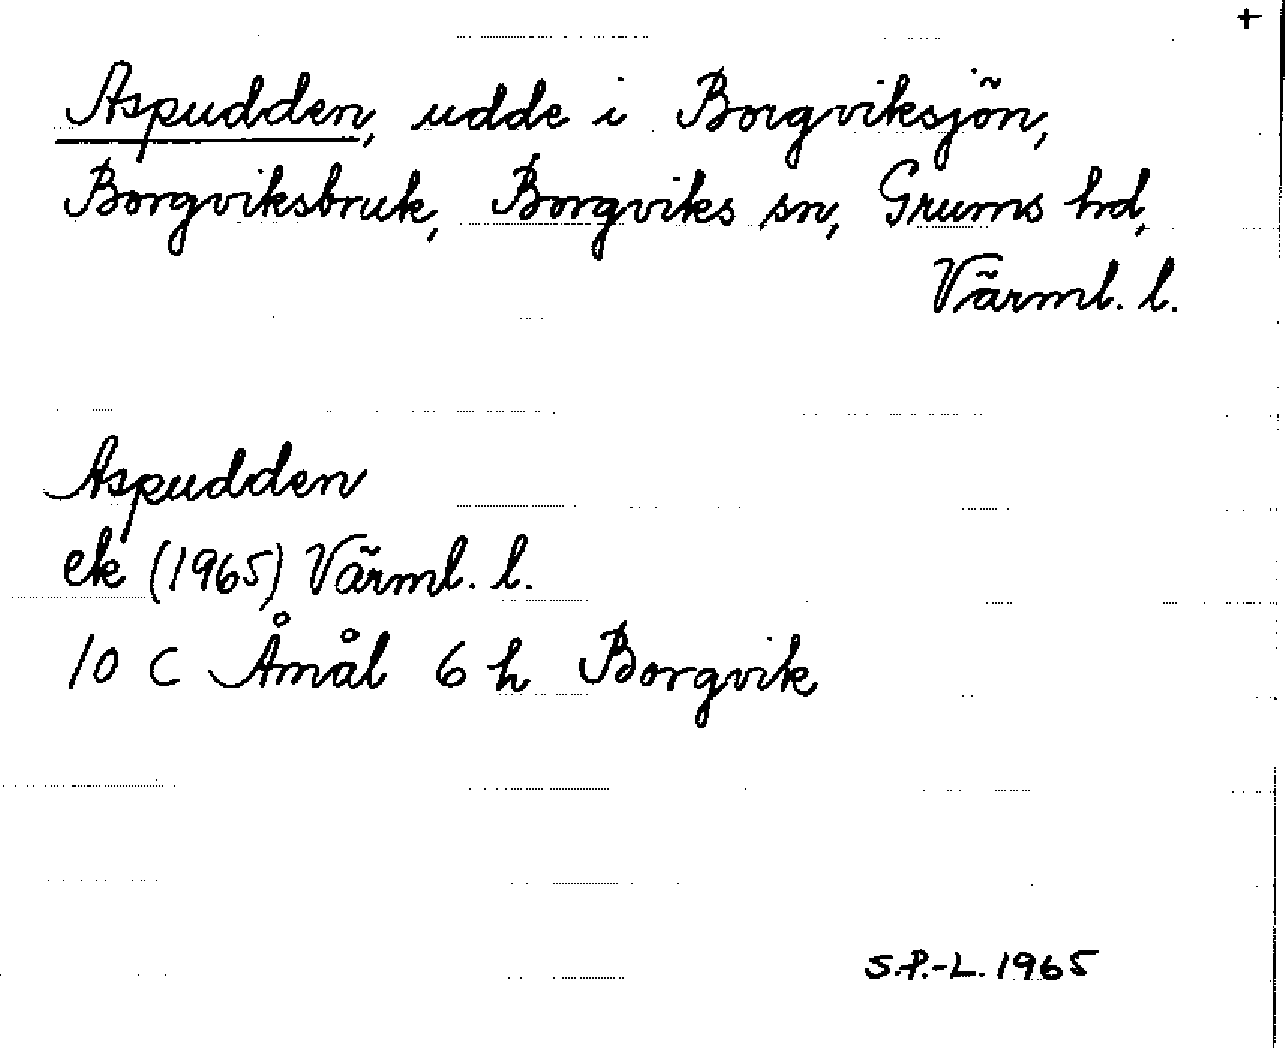 +
Aspudden, udde i Borgviksjön,
Borgviksbruk, Borgviks sn, Grums hd,
Värml. l.
Aspudden
ek (1965) Värml. l.
10 C Åmål 6 h Borgvik
S.P.-L. 1965